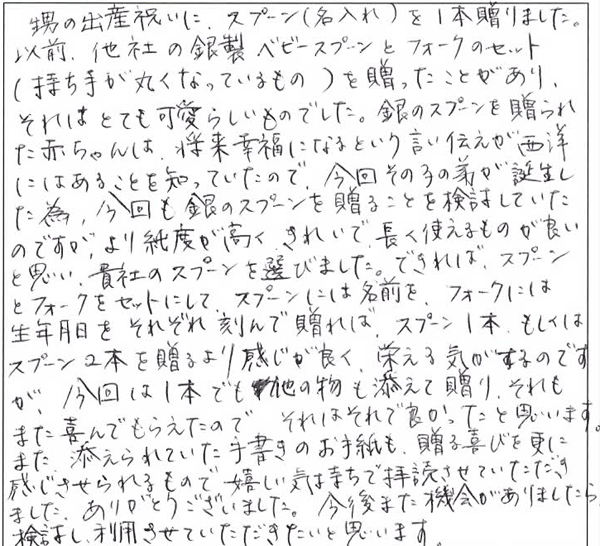 甥の出産祝いに、スプーン(名入れ)を1本贈りました。
以前、他社の銀製ベビースプーンとフォークのセット
(持ち手が丸くなっているもの)を贈ったことがあり、
それはとても可愛らしいものでした。銀のスプーンを贈られ
た赤ちゃんは、将来幸福になるという言い伝えが西洋
にはあることを知っていたので、今回その子の弟が誕生し
た為、今回も銀のスプーンを贈ることを検討していた
のですが、より純度が高く、きれいで、長く使えるものが良い
と思い、貴社のスプーンを選びました。できれば、スプーン
とフォークをセットにして、スプーンには名前を、フォークには
生年月日を、それぞれ刻んで贈れば、スプーン1本、もしくは
スプーン2本を贈るより感じが良く、栄える気がするのです
が、今回は1本でも他の物も添えて贈り、それも
また喜んでもらえたので、それはそれで良かったと思います。
また、添えられていた手書きのお手紙も、贈る喜びを更に
感じさせられるもので、嬉しい気持ちで拝読させていただき
ました。ありがとうございました。今後また機会がありましたら、
検討し、利用させていただきたいと思います。